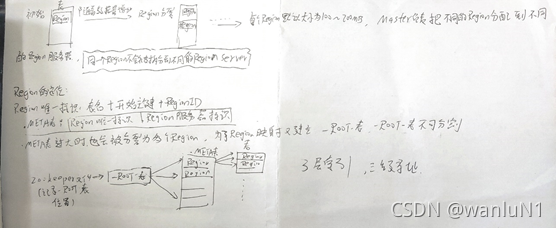 初始 表 Region
随着数据量增加
Region分裂
Region
每个Region默认大小为100~200MB, Master负责把不同的Region分配到不同
的Region服务器,
同一个Region不会被拆分到不同的Region Server
Region的定位:
Region唯一标识: 表名+开始主键+RegionID
.META表: Region唯一标识 Region服务器标识
.META表过大时,也会被分裂为多个Region,为了Region映射又建立 -ROOT-表 -ROOT-表不可分割
.META表 表
Zookeeper文件
(记录-ROOT表
位置)
-ROOT-表
Region
Region
Region
Region
3层索引,三级寻址
CSDN @wanluN1